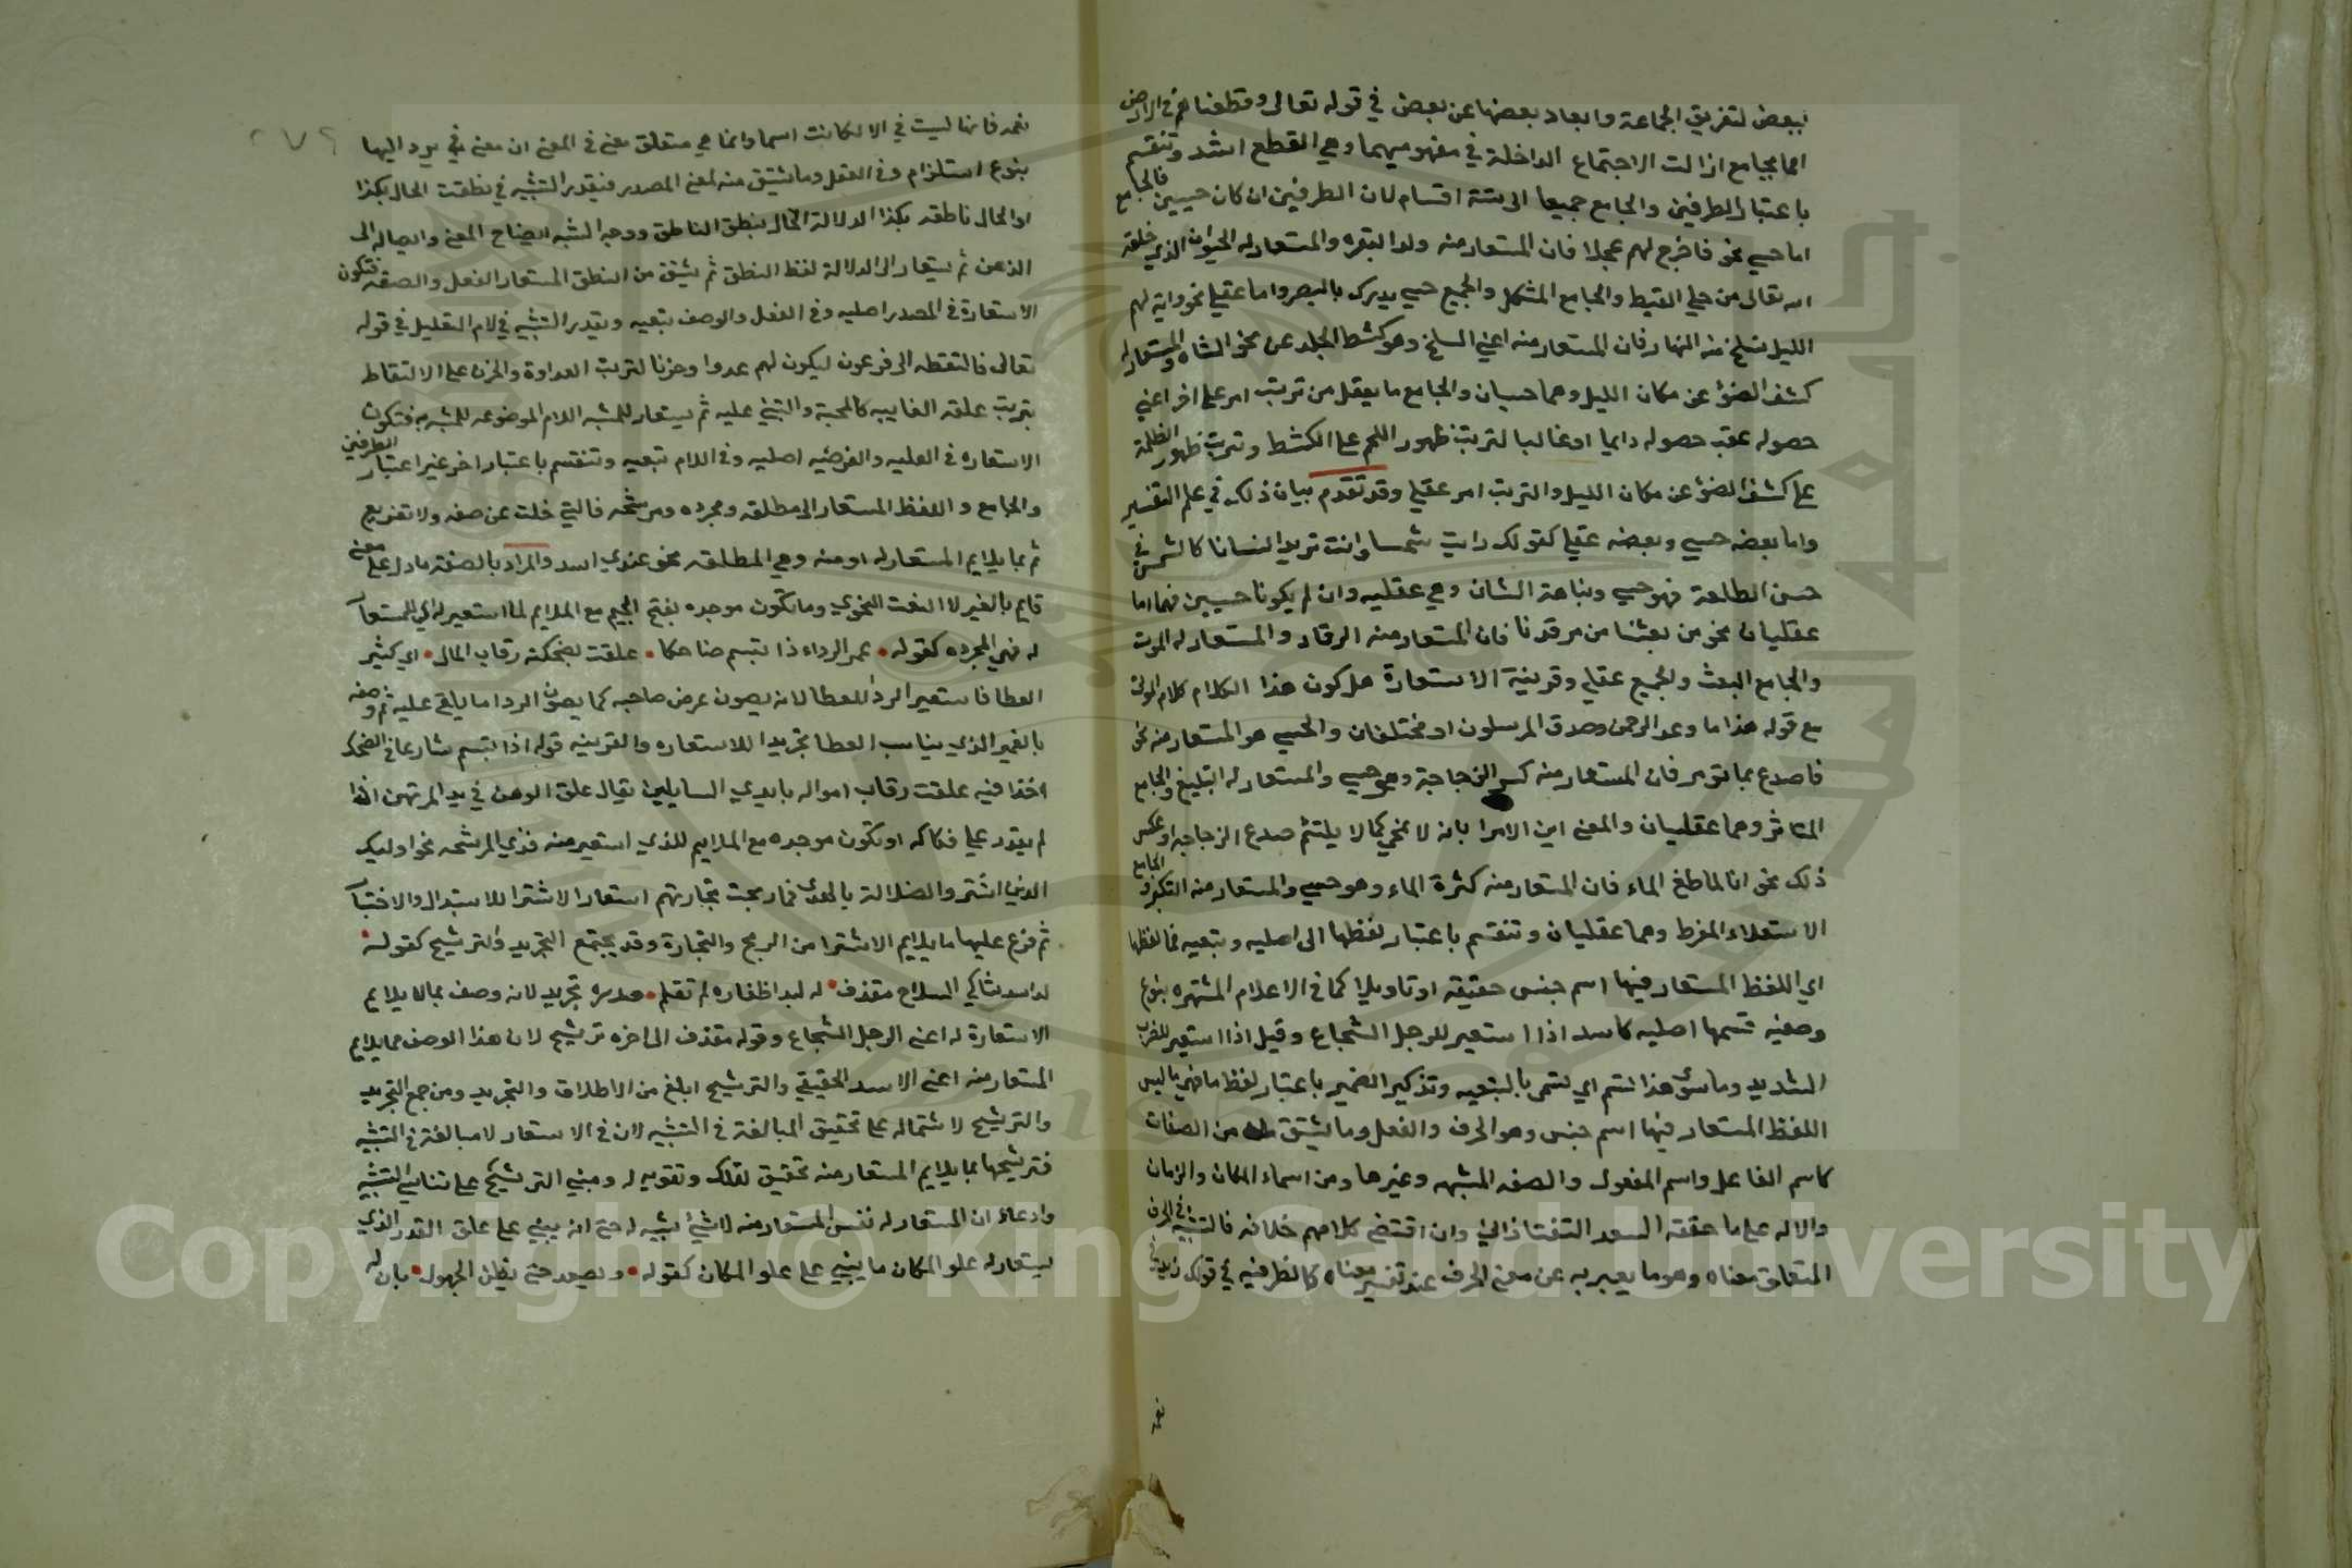 ببعض لتفريق الجماعة وابعاد بعضها عن بعض في قوله تعالى وقطعناهم في الارض
امما بجامع ازالت الاجتماع الداخلة في مفهوميهما وهي القطع اشد وتنقسم
باعتبار الطرفين والجامع جميعا الى ستة اقسام لان الطرفين ان كان حسيين فالجامع
اما حسي نحو فاخرج لهم عجلا فان المستعار منه ولد البقره والمستعار له الحيوان الذي خلقه
الله تعالى من حلي القبط والجامع الشكل والجميع حسي يدرك بالبصر واما عقلي نحو واية لهم
الليل نسلخ منه النهار فان المستعار منه اعني السلخ وهو كشط الجلد عن نحو الشاه والمستعار له
كشف الضؤ عن مكان الليل وهما حسيان والجامع ما يعقل من ترتب امر على اخر اعني
حصوله عقب حصوله دايما او غالبا لترتب ظهور اللحم على الكشط وترتب ظهور الظلمة
على كشف الضؤ عن مكان الليل والترتب امر عقلي وقد تقدم بيان ذلك في علم التفسير
واما بعضه حسي وبعضه عقلي كقولك رايت شمسا وانت تريد انسانا كالشمس في
حسن الطلعة فهو حسي ونباهة الشان وهي عقليه وان لم يكونا حسيين فهما اما
عقليان نحو من بعثنا من مرقدنا فان المستعار منه الرقاد والمستعار له الموت
والجامع البعث والجميع عقلي وقرينة الاستعارة هل كون هذا الكلام كلام الموتى
مع قوله هذا ما وعد الرحمن وصدق المرسلون او مختلفان والحسي هو المستعار منه نحو
فاصدع بما تومر فان المستعار منه كسر الزجاجة وهو حسي والمستعار له التبليغ والجامع
التاثر وهما عقليان والمعنى ابن الامرا بانه لا نمحي كما لا يلتئم صدع الزجاجه او عكس
ذلك نحو انا لما طغ الماء فان المستعار منه كثرة الماء وهو حسي والمستعار منه التكبر والجامع
الاستعلاء المفرط وهما عقليان وتنقسم باعتبار لفظها الى اصليه وتبعيه فما لفظها
اي اللفظ المستعار فيها اسم جنس حقيقه او تاويلا كما في الاعلام المشتهره بنوع
وصفيه قسمها اصليه كاسد اذا استعير للرجل الشجاع وقيل اذا استعير للضرب
الشديد وما سوى هذا تسم اي تسمى بالتبعيه وتذكير الضمير باعتبار لفظ ما فهي ما ليس
اللفظ المستعار فيها اسم جنس وهو الحرف والفعل وما يشتق منه من الصفات
كاسم الفاعل واسم المفعول والصفه المشبهه وغيرها ومن اسماء المكان والزمان
والاله على ما حققه السعد التفتازاني وان اقتضى كلامهم خلافه فالتشبيه في الحرف
المتعلق معناه وهو ما يعبر به عن معنى الحرف عند تفسير معناه كالظرفيه في قولك زيد في
نعمه فانها ليست في الا لكانت اسما وانما هي متعلق معنى في المعنى ان معنى في يرد اليها
بنوع استلزام وفي الفعل وما يشتق منه لمعنى المصدر فيقدر التشبيه في نطقت الحال بكذا
او الحال ناطقه بكذا الدلالة الحال بنطق الناطق ووجه الشبه ايضاح المعنى وايصاله الى
الذهن ثم يستعار الى الدلالة لفظ النطق ثم يشتق من النطق المستعار الفعل والصفه فتكون
الاستعارة في المصدر اصليه وفي الفعل والوصف تبعيه ويقدر التشبيه في لام التعليل في قوله
تعالى فالتقطه ال فرعون ليكون لهم عدوا وحزنا لترتب العداوة والحزن على الالتقاط
بترتب علقه الغاييه كالمحبة والتبني عليه ثم يستعار للمشبه اللام الموضوعه للمشبه به فتكون
الاستعاره في العليه والغرضيه اصليه وفي اللام تبعيه وتنقسم باعتبار اخر غير اعتبار الطرفين
والجامع واللفظ المستعار الى مطلقه ومجرده ومرشحه فالتي خلت عن صفه ولا تفريع
ثم بما يلايم المستعار له او منه وهي المطلقه نحو عندي اسد والمراد بالصفة ما دل على معنى
قايم بالغير لا النعت النحوي وما تكون موجده بفتح الجيم مع الملايم لما استعير له اي المستعار
له فهي المجرده كقوله • غمر الرداء اذا تبسم ضاحكا • علقت بضحكته رقاب المال • اي كثير
العطا فاستعير الردا للعطا لانه يصون عرض صاحبه كما يصون الردا ما يلقى عليه ثم وصفه
بالغمر الذي يناسب العطا تجريدا للاستعاره والقرينه قوله اذا تبسم شارعا في الضحك
اخذا فيه علقت رقاب امواله بايدي السايلين يقال علق الرهن في يد المرتهن اذا
لم يقدر على فكاكه او تكون موجده مع الملايم للذي استعير منه فذي المرشحه نحو اوليك
الذين اشتروا الضلالة بالهدى فما ربحت تجارتهم استعار الاشترا للاستبدال والاختيار
ثم فرع عليها ما يلايم الاشترا من الربح والتجارة وقد يجتمع التجريد والترشيح كقوله •
لدا اسد شاكي السلاح مقذف • له لبد اظفاره لم تقلم • صدره تجريد لانه وصف بما لا يلايم
الاستعارة له اعني الرجل الشجاع وقوله مقذف الى اخره ترشيح لان هذا الوصف مما يلايم
المستعار منه اعني الاسد الحقيقي والترشيح ابلغ من الاطلاق والتجريد ومن جمع التجريد
والترشيح لاشتماله على تحقيق المبالغة في التشبيه لان في الاستعار لا مبالغة في التشبيه
فترشيحها بما يلايم المستعار منه تحقيق لذلك وتقويه له ومبني الترشيح على تناسي التشبيه
وادعاؤ ان المستعار له نفس المستعار منه لا شيئ يشبه له حتى انه يبني على علق القدر الذي
يستعار له علو المكان ما يبني على علو المكان كقوله • ويصعد حتى يظن الجهول • بان له
Copyright © King Saud University